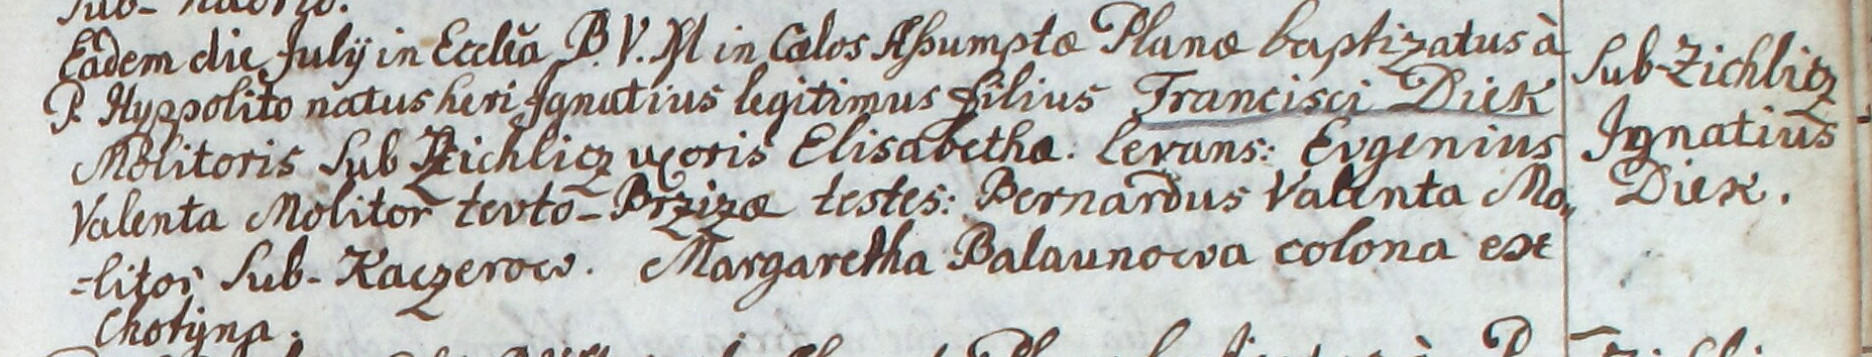 Eadem die July in Ecclia B. V. M in Cælos Assumptæ Planæ baptizatus à
P. Hyppolito natus heri Ignatius legitimus filius Francisci Diek
Molitoris Sub Zichlicz uxoris Elisabethæ. levans: Evgenius
Valenta Molitor tevto-Brzizæ testes: Bernardus Valenta Mo„
=litor Sub-Kaczerow. Margaretha Balaunowa colona ex
Chotyna.
Sub-Zichlicz
Ignatius
Diek.